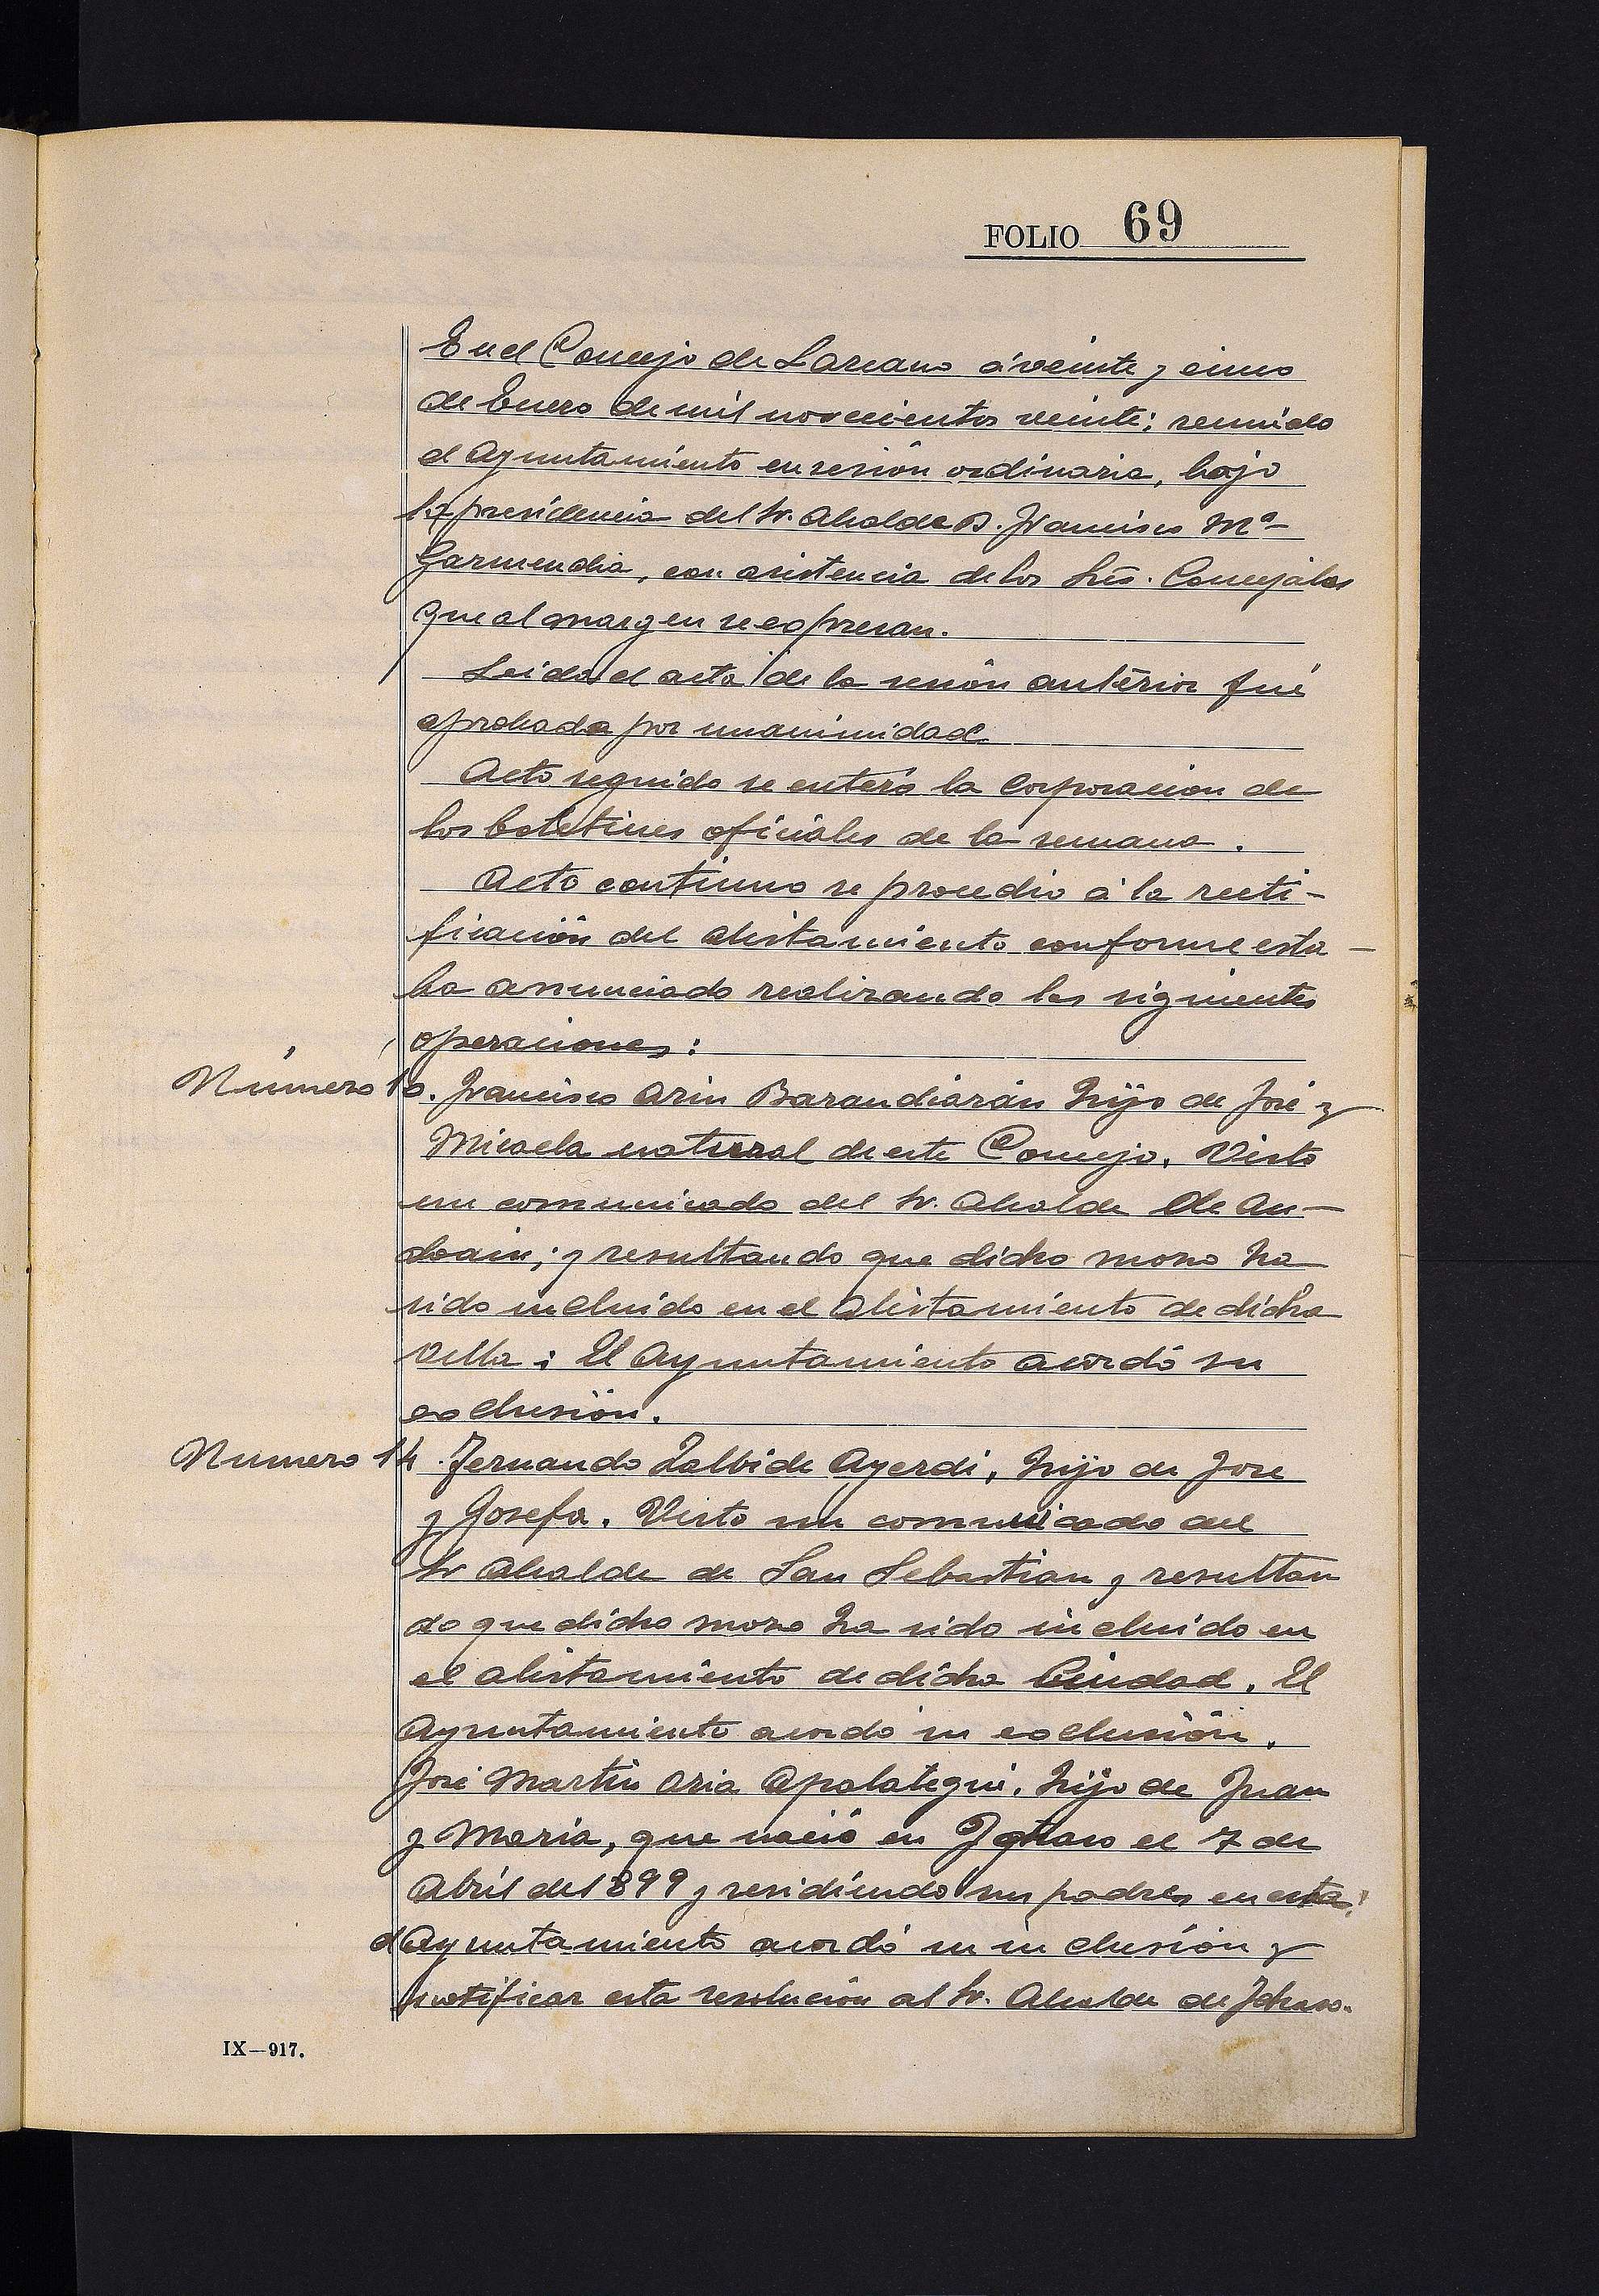 FOLIO 69
En el Concejo de Lazcano á veinte y cinco
de Enero de mil novecientos veinte; reunido
el Ayuntamiento en sesión ordinaria, bajo
la presidencia del Sr. Alcalde D. Francisco Mª
Garmendia, con asistencia de los Srés. Concejales
que al margen se expresan.
Leida el acta de la sesión anterior fué
aprobada por unanimidad.
Acto seguido se enteró la Corporacion de
los boletines oficiales de la semana.
Acto continuo se procedio á la recti-
ficación del alistamiento conforme esta-
ba anunciado realizando las siguientes
operaciones:
Número 10. Francisco Arin Barandiarán hijo de José y
Micaela natural de este Concejo. Visto
un comunicado del Sr. Alcalde de An-
doain; y resultando que dicho mozo ha
sido incluido en el alistamiento de dicha
villa; El Ayuntamiento acordó su
exclusión.
Numero 14. Fernando Zalbide Ayerdi, hijo de Jose
y Josefa. Visto un comunicado del
Sr Alcalde de San Sebastian y resultan
do que dicho mozo ha sido incluido en
el alistamiento de dicha Ciudad. El
Ayuntamiento acordó su exclusión.
José Martin Aria Apalategui, hijo de Juan
y Maria, que nació en Ichaso el 7 de
Abril del 899 y residiendo sus padres en esta;
el Ayuntamiento acordó su inclusión y
notificar esta resolución al Sr. Alcalde de Ichaso.
IX—917.